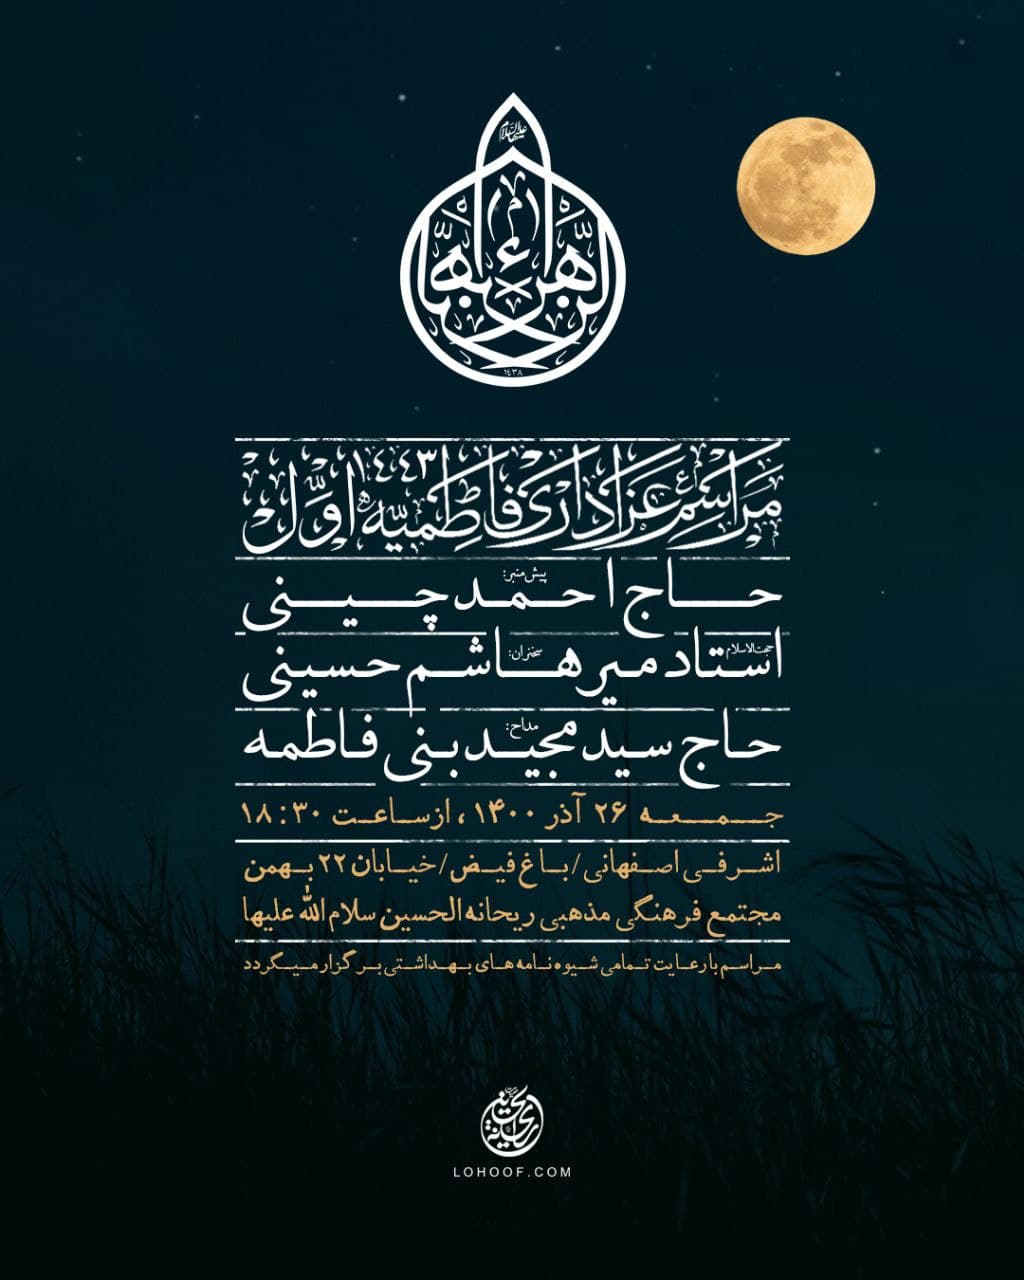 علیهاالسلام
۱۴۳۸
مراسم عزاداری فاطمیه اول ۱۴۴۳
پیش منبر:
حاج احمد چینی
حجت‌الاسلام
سخنران:
استاد میرهاشم حسینی
مداح:
حاج سید مجید بنی فاطمه
جمعه ۲۶ آذر ۱۴۰۰ ، از ساعت ۱۸:۳۰
اشرفی اصفهانی / باغ فیض / خیابان ۲۲ بهمن
مجتمع فرهنگی مذهبی ریحانه الحسین سلام الله علیها
مراسم با رعایت تمامی شیوه نامه های بهداشتی برگزار میگردد
LOHOOF.COM